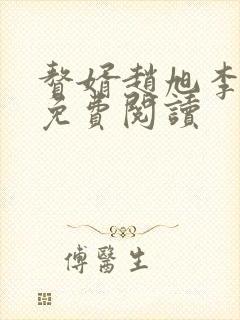 贅婿趙旭李
免費閱讀
傅醫生